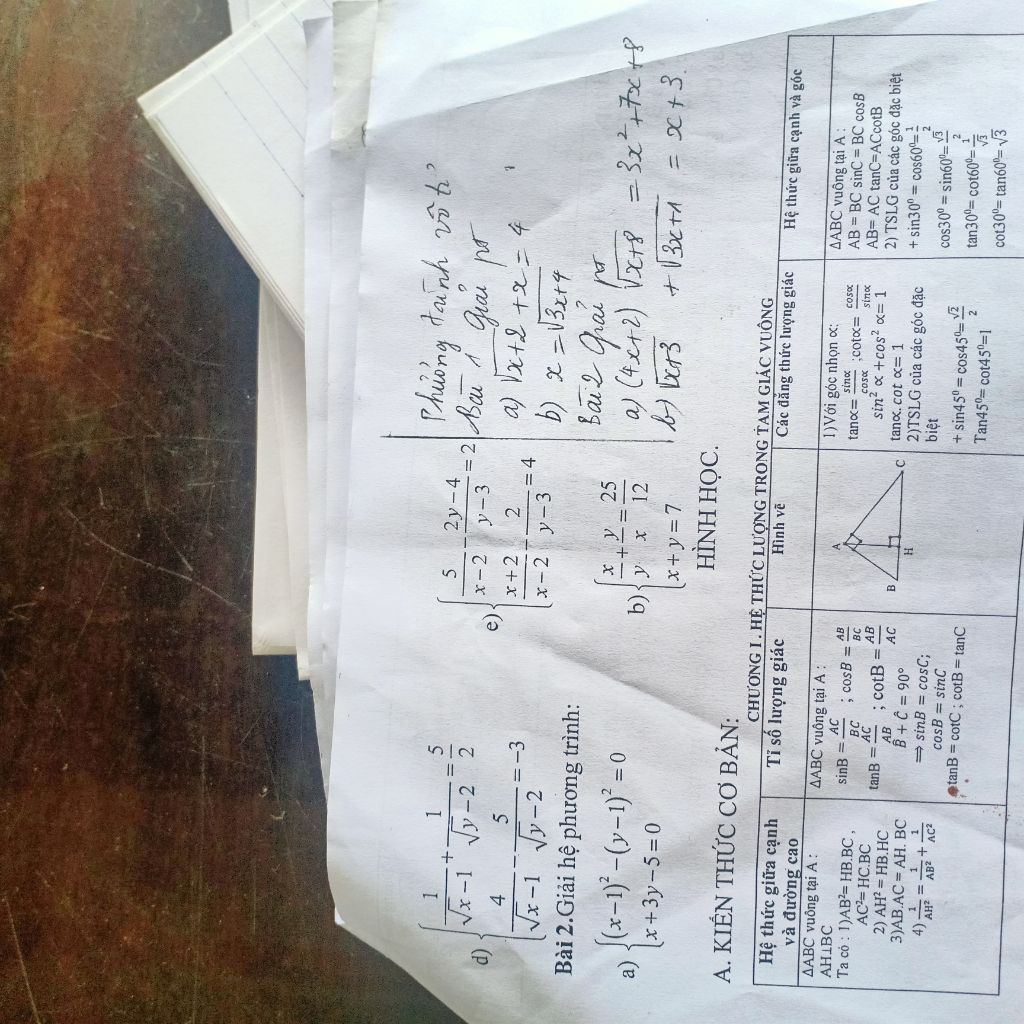 d) { 1/(√x−1) + 1/(√y−2) = 5/2
4/(√x−1) − 5/(√y−2) = −3
e) { 5/(x−2) − (2y−4)/(y−3) = 2
(x+2)/(x−2) − 2/(y−3) = 4
Bài 2.Giải hệ phương trình:
a) { (x−1)² −(y−1)² = 0
x+3y−5=0
b) { x/y + y/x = 25/12
x+y=7
Phương trình vô tỉ
Bài 1 Giải pt
a) √x+2 + x = 4
b) x = √3x+4
Bài 2 Giải pt
a) (4x+2) √x+8 = 3x² +7x +8
b) √x+3 + √3x+1 = x+3
HÌNH HỌC.
A. KIẾN THỨC CƠ BẢN:
CHƯƠNG I . HỆ THỨC LƯỢNG TRONG TAM GIÁC VUÔNG
Hệ thức giữa cạnh
và đường cao
Tỉ số lượng giác
Hình vẽ
Các đẳng thức lượng giác
Hệ thức giữa cạnh và góc
ΔABC vuông tại A :
AH⊥BC
Ta có : 1)AB²= HB.BC ,
AC²= HC.BC
2) AH² = HB.HC
3)AB.AC = AH. BC
4) 1/AH² = 1/AB² + 1/AC²
ΔABC vuông tại A :
sinB = AC/BC ; cosB = AB/BC
tanB = AC/AB ; cotB = AB/AC
B̂ + Ĉ = 90°
⇒ sinB = cosC;
cosB = sinC
tanB = cotC ; cotB = tanC
A
B
H
C
1)Với góc nhọn α:
tanα= sinα/cosα ;cotα= cosα/sinα
sin² α +cos² α= 1
tanα.cot α= 1
2)TSLG của các góc đặc
biệt
+ sin45⁰ = cos45⁰= √2/2
Tan45⁰= cot45⁰=1
ΔABC vuông tại A :
AB = BC sinC = BC cosB
AB= AC tanC=ACcotB
2) TSLG của các góc đặc biệt
+ sin30⁰ = cos60⁰= 1/2
cos30⁰ = sin60⁰= √3/2
tan30⁰= cot60⁰= 1/√3
cot30⁰= tan60⁰= √3